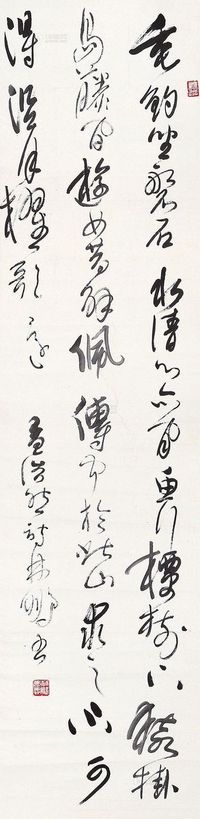 垂钓坐磐石水清心亦闲鱼行潭树下猿挂
岛藤间游女昔解佩传闻于此山求之不可
得沿月棹歌还
孟浩然诗林鹏书